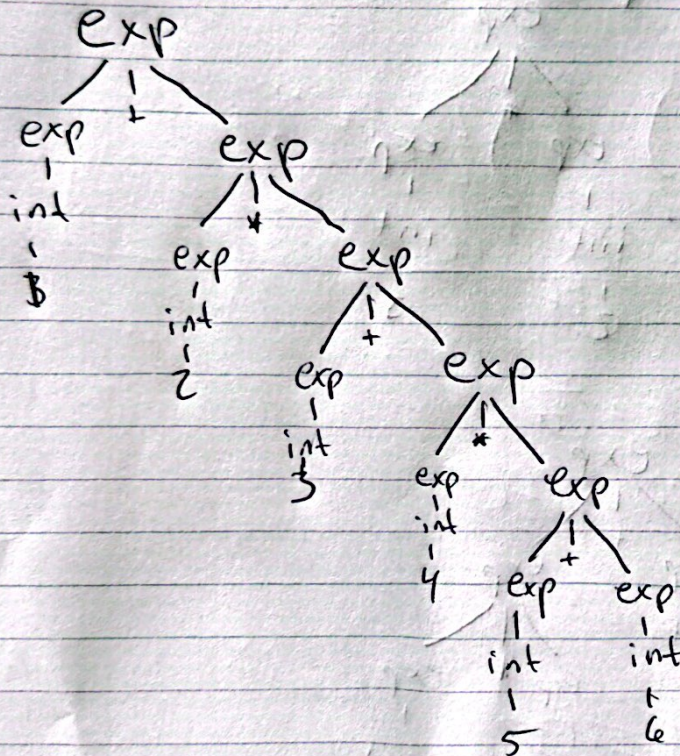 exp
exp +
exp
int *
exp exp
int +
2 exp exp
int *
3 exp exp
int
+
4 exp exp
int int
5 6